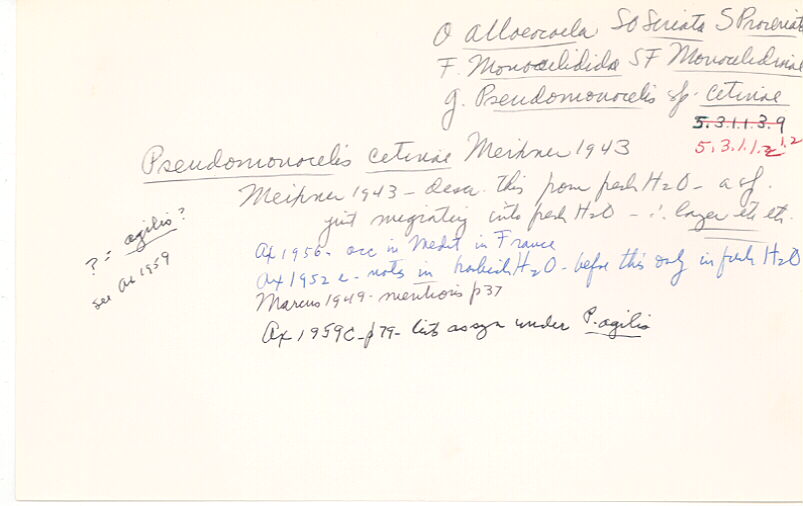 O Alloeocoela SO Seriata S Proseriata
F. Monocelididae SF Monocelidinae
g. Pseudomonocelis sp. cetinae
5.3.1.1.3.9
5.3.1.1.2 1.2
Pseudomonocelis cetinae Meixner 1943
Meixner 1943 - desc. this from fresh H2O - a sp.
just migrating into fresh H2O - ∴
? = agilis?
see Ax 1959
Ax 1956 - occ in Medit in France
Ax 1952 - notes in brackish H2O - before this only in fresh H2O
Marcus 1949 - mentions p37
Ax 1959c - p79 - lists as syn under P. agilis